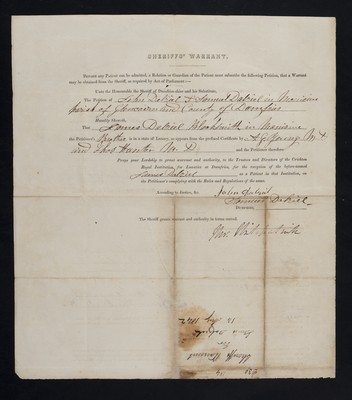 SHERIFFS' WARRANT.
BEFORE any Patient can be admitted, a Relative or Guardian of the Patient must subscribe the following Petition, that a Warrant
may be obtained from the Sheriff, as required by Act of Parliament:—
Unto the Honourable the Sheriff of Dumfries-shire and his Substitutes.
The Petition of John Dalziel & Samuel Dalziel in Moniaive
parish of Glencairn and County of Dumfries
Humbly Sheweth,
That James Dalziel Blacksmith in Moniaive
the Petitioner's Brother is in a state of Lunacy, as appears from the prefixed Certificate by
and Thos M. D. and the Petitioner therefore
Prays your Lordship to grant warrant and authority to the Trustees and Directors of the Crichton
Royal Institution, for Lunatics at Dumfries, for the reception of the before-named
James Dalziel as a Patient in that Institution, on
the Petitioner's complying with the Rules and Regulations of the same.
According to Justice, &c. John Dalziel
Samuel Dalziel
DUMFRIES,
The Sheriff grants warrant and authority in terms craved.
1842
James Dalziel
for
Sheriffs Warrant